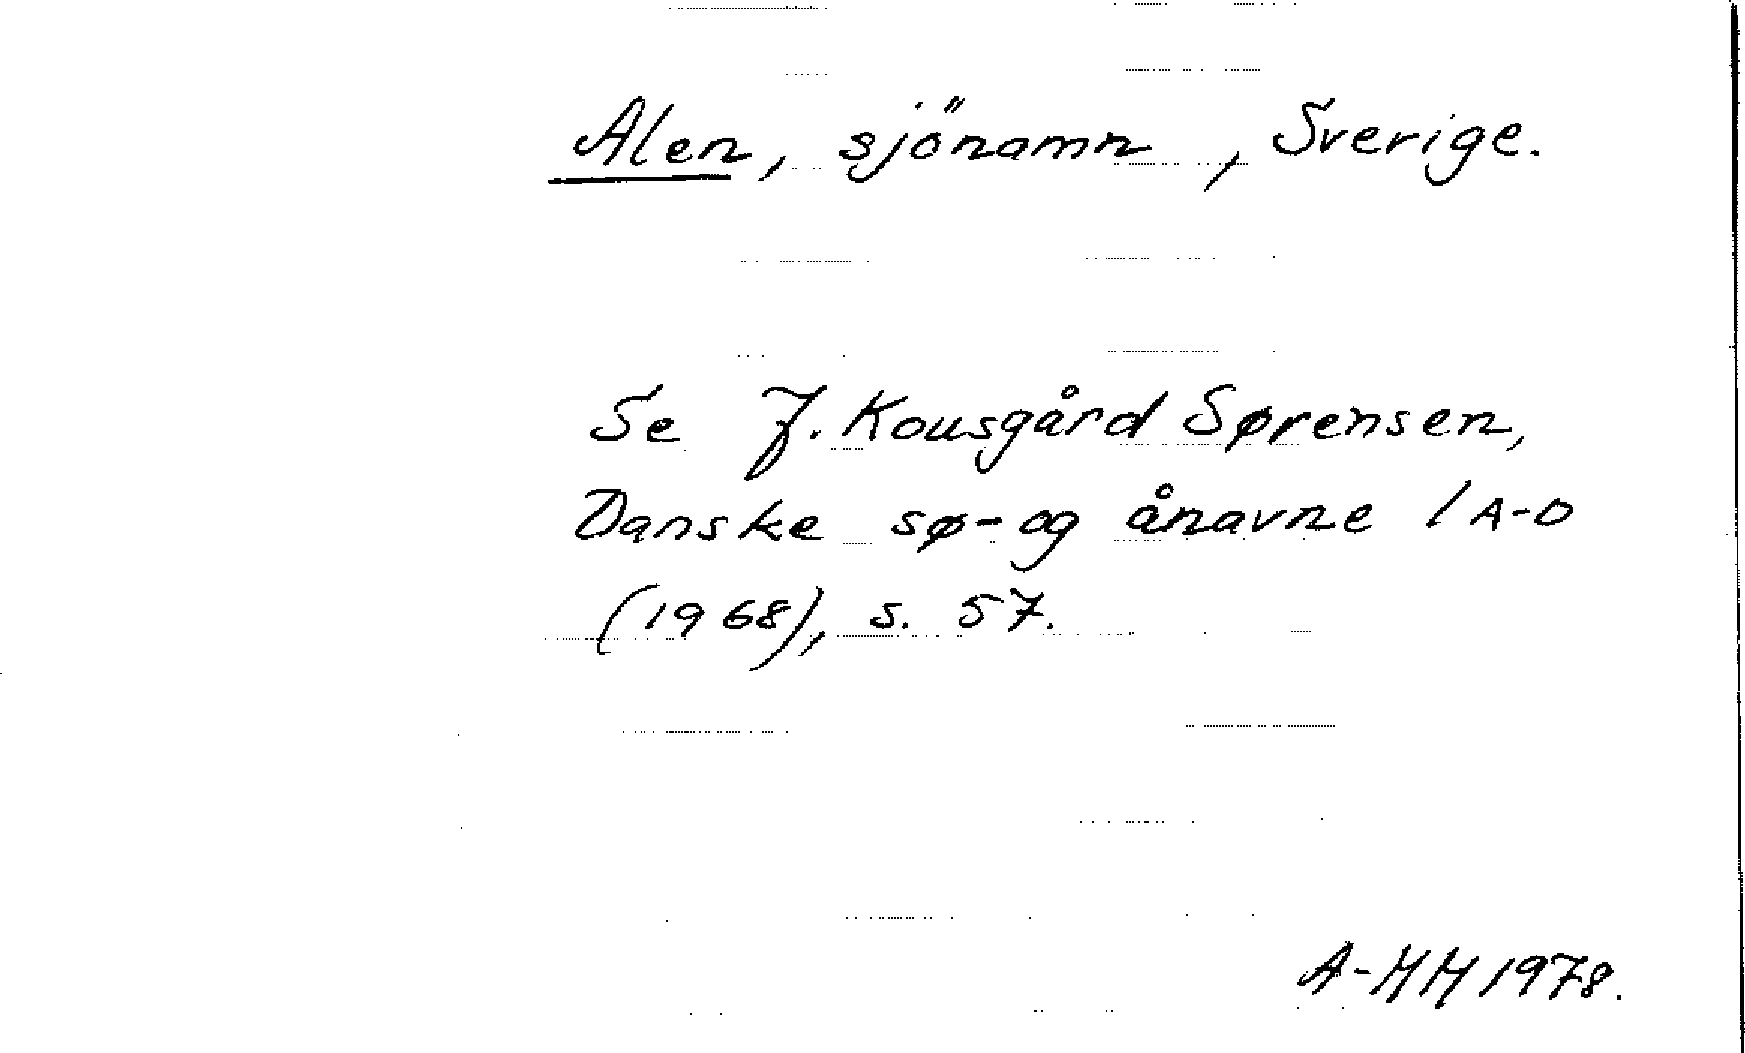 Alen, sjönamn, Sverige.
Se J. Kousgård Sørensen,
Danske sø- og ånavne 1 A-D
(1968), s. 57.
A-MM 1978.